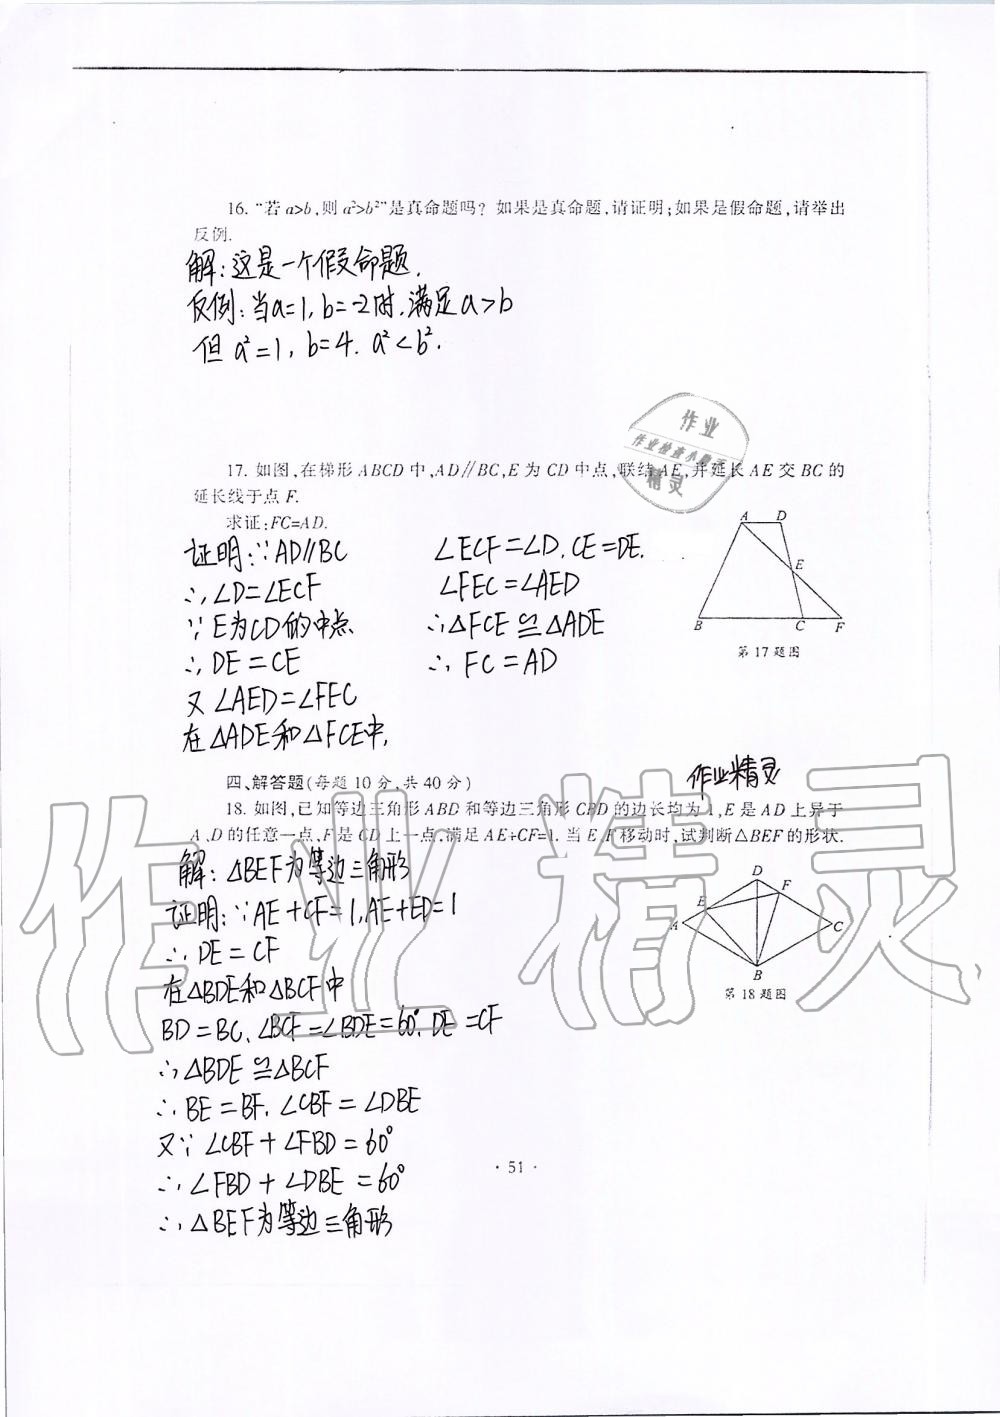 16. “若a>b,则a²>b²”是真命题吗？如果是真命题,请证明;如果是假命题,请举出
反例.
解:这是一个假命题.
反例:当a=1,b=-2时.满足a>b
但a²=1,b=4.a²<b².
作业
作业检查小帮手
精灵
17. 如图,在梯形ABCD中,AD∥BC,E为CD中点,联结AE,并延长AE交BC的
延长线于点F.
求证:FC=AD.
证明:∵AD∥BC
∴∠D=∠ECF
∵E为CD的中点
∴DE=CE
又∠AED=∠FEC
在△ADE和△FCE中,
∠ECF=∠D.CE=DE.
∠FEC=∠AED
∴△FCE≌△ADE
∴FC=AD
A D
E
B C F
第17题图
四、解答题(每题10分,共40分)
作业精灵
18. 如图,已知等边三角形ABD和等边三角形CBD的边长均为1,E是AD上异于
A、D的任意一点,F是CD上一点,满足AE+CF=1.当E、F移动时,试判断△BEF的形状.
解:△BEF为等边三角形
证明:∵AE+CF=1,AE+ED=1
∴DE=CF
在△BDE和△BCF中
BD=BC、∠BCF=∠BDE=60°.DE=CF
∴△BDE≌△BCF
∴BE=BF.∠CBF=∠DBE
又∵∠CBF+∠FBD=60°
∴∠FBD+∠DBE=60°
∴△BEF为等边三角形
D
F
E
A C
B
第18题图
作业精灵
· 51 ·